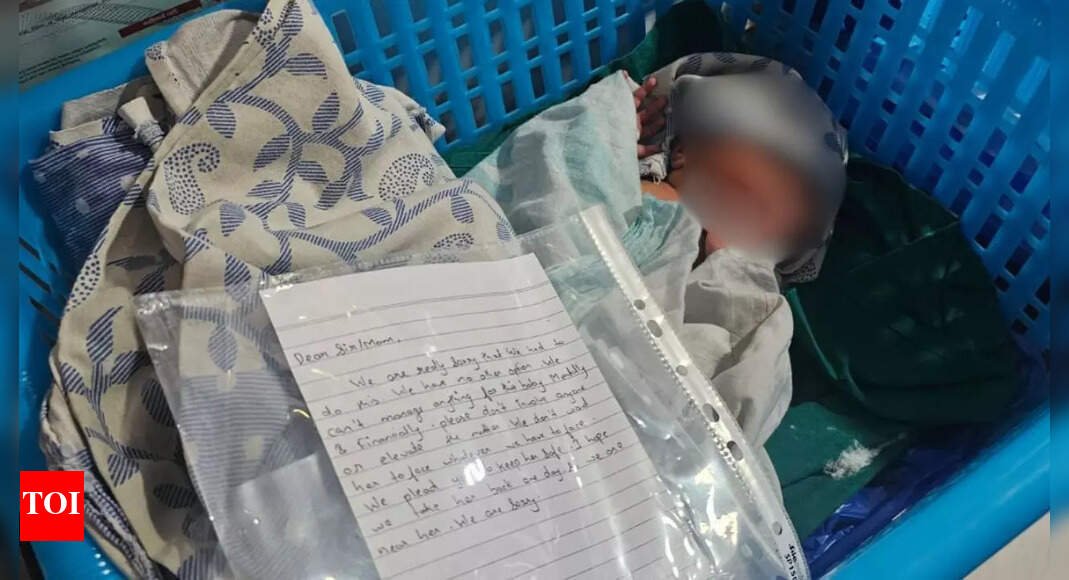 Dear Sir/Mam,
We are really sorry that We had to
do this. We have no other option We
can't manage anything for this baby Mentally
& Financially. please don't involve anyone
or elevate the matter. We don't want
her to face whatever we have to face
We plead y to keep her safe. I hope
we take her back one day. & we are
near her. We are sorry.
TOI